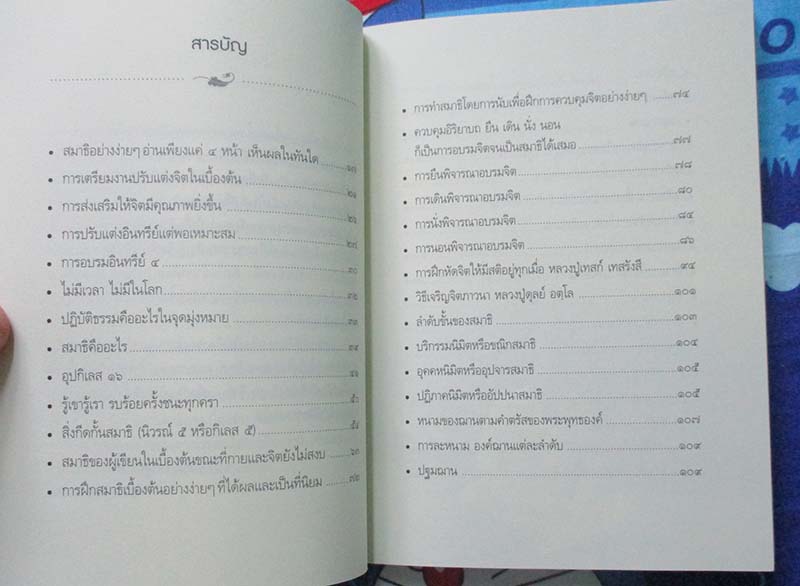 สารบัญ
• สมาธิอย่างง่ายๆ อ่านเพียงแค่ ๔ หน้า เห็นผลในทันใด ....๑๗
• การเตรียมงานปรับแต่งจิตในเบื้องต้น ....๒๑
• การส่งเสริมให้จิตมีคุณภาพยิ่งขึ้น ....๒๖
• การปรับแต่งอินทรีย์แต่พอเหมาะสม ....๒๗
• การอบรมอินทรีย์ ๕ ....๓๐
• ไม่มีเวลา ไม่มีในโลก ....๓๒
• ปฏิบัติธรรมคืออะไรในจุดมุ่งหมาย ....๓๓
• สมาธิคืออะไร ....๓๔
• อุปกิเลส ๑๖ ....๔๑
• รู้เขารู้เรา รบร้อยครั้งชนะทุกครา ....๕๐
• สิ่งกีดกั้นสมาธิ (นิวรณ์ ๕ หรือกิเลส ๕) ....๕๔
• สมาธิของผู้เขียนในเบื้องต้นขณะที่กายและจิตยังไม่สงบ ....๖๓
• การฝึกสมาธิเบื้องต้นอย่างง่ายๆ ที่ได้ผลและเป็นที่นิยม ....๗๒
• การทำสมาธิโดยการนับเพื่อฝึกการควบคุมจิตอย่างง่ายๆ ....๗๔
• ควบคุมอิริยาบถ ยืน เดิน นั่ง นอน
ก็เป็นการอบรมจิตจนเป็นสมาธิได้เสมอ ....๗๗
• การยืนพิจารณาอบรมจิต ....๗๘
• การเดินพิจารณาอบรมจิต ....๘๐
• การนั่งพิจารณาอบรมจิต ....๘๔
• การนอนพิจารณาอบรมจิต ....๘๖
• การฝึกหัดจิตให้มีสติอยู่ทุกเมื่อ หลวงปู่เทสก์ เทสรังสี ....๙๔
• วิธีเจริญจิตภาวนา หลวงปู่ดูลย์ อตุโล ....๑๐๑
• ลำดับชั้นของสมาธิ ....๑๐๓
• บริกรรมนิมิตหรือขณิกสมาธิ ....๑๐๔
• อุคคหนิมิตหรืออุปจารสมาธิ ....๑๐๕
• ปฏิภาคนิมิตหรืออัปปนาสมาธิ ....๑๐๕
• หนามของฌานตามคำตรัสของพระพุทธองค์ ....๑๐๗
• การละหนาม องค์ฌานแต่ละลำดับ ....๑๐๙
• ปฐมฌาน ....๑๐๙